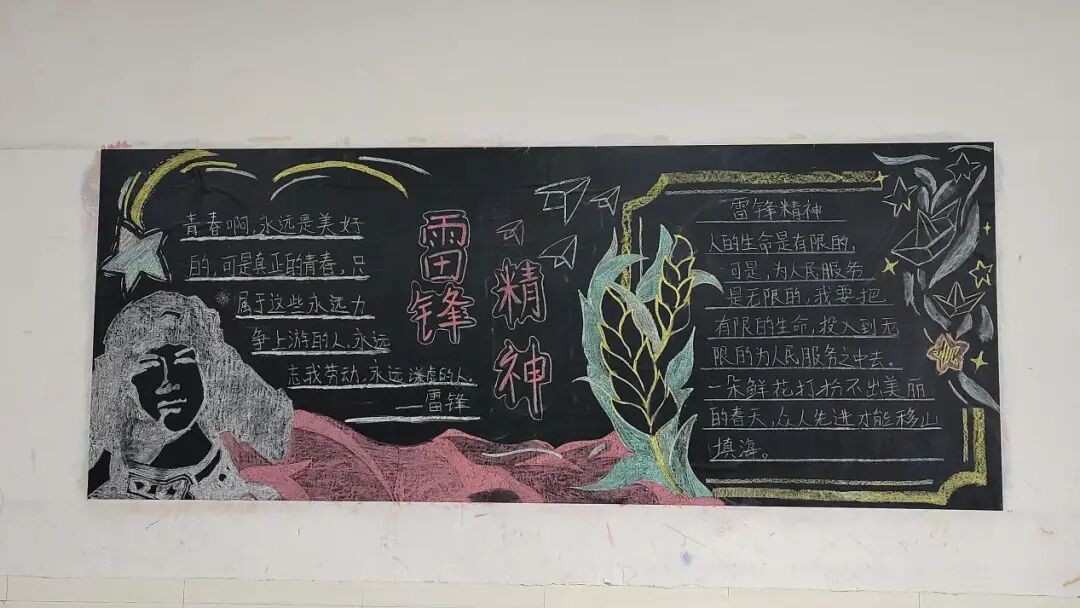 青春啊,永远是美好
的,可是真正的青春,只
属于这些永远力
争上游的人,永远
忘我劳动,永远谦虚的人。
——雷锋
雷锋
精神
雷锋精神
人的生命是有限的,
可是,为人民服务
是无限的,我要把
有限的生命,投入到无
限的为人民服务之中去。
一朵鲜花打扮不出美丽
的春天,众人先进才能移山
填海。